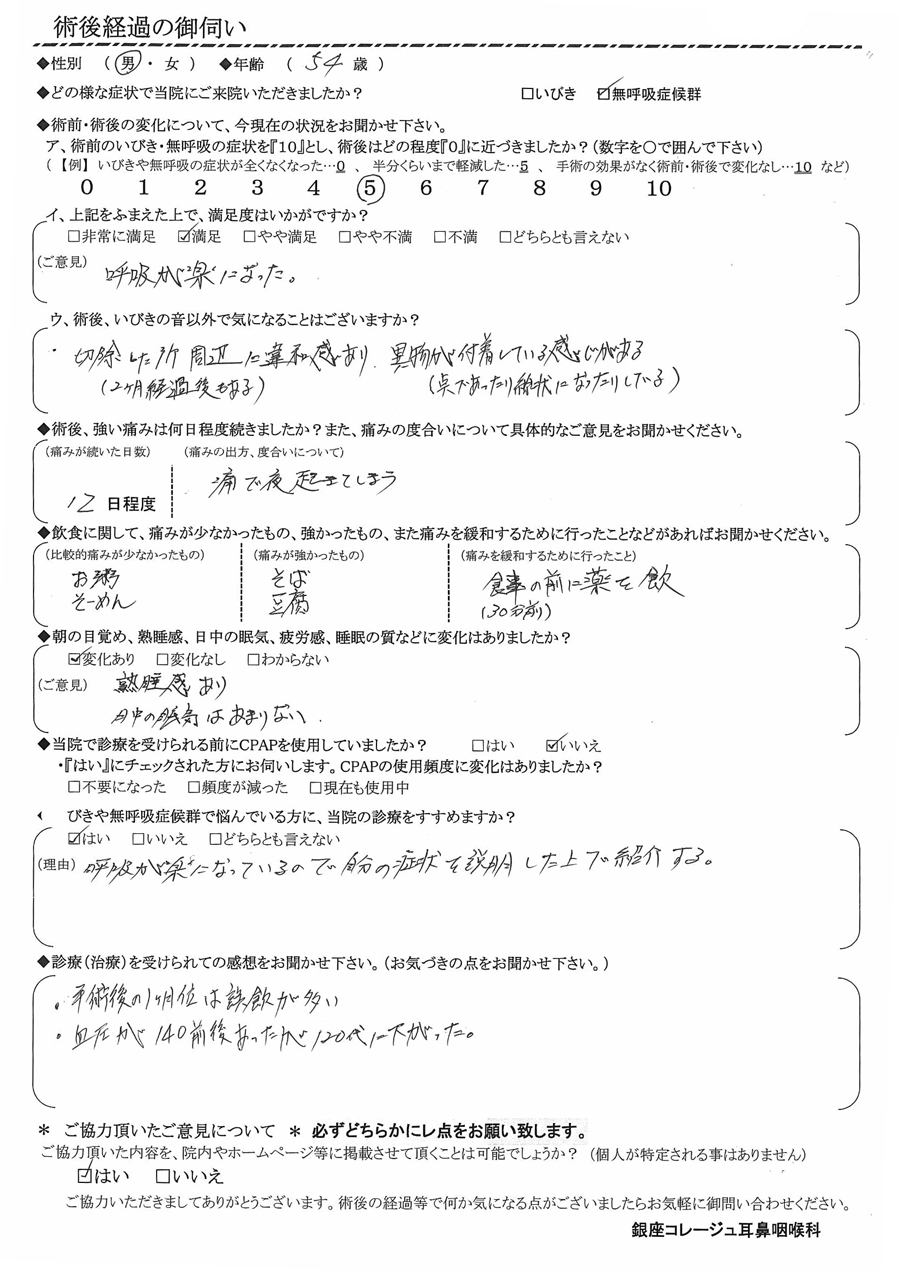 術後経過の御伺い
◆性別 （ 男 ・ 女 ） ◆年齢 （ 54 歳 ）
◆どの様な症状で当院にご来院いただきましたか？ □いびき ☑無呼吸症候群
◆術前・術後の変化について、今現在の状況をお聞かせ下さい。
ア、術前のいびき・無呼吸の症状を『10』とし、術後はどの程度『0』に近づきましたか？（数字を〇で囲んで下さい）
（【例】 いびきや無呼吸の症状が全くなくなった…0 、 半分くらいまで軽減した…5 、 手術の効果がなく術前・術後で変化なし…10 など）
0 1 2 3 4 5 6 7 8 9 10
イ、上記をふまえた上で、満足度はいかがですか？
□非常に満足 ☑満足 □やや満足 □やや不満 □不満 □どちらとも言えない
（ご意見） 呼吸が楽になった。
ウ、術後、いびきの音以外で気になることはございますか？
・ 切除した所周辺に違和感あり、異物が付着している感じがある
（2ヶ月経過後もある） （点であったり線状になったりしている）
◆術後、強い痛みは何日程度続きましたか？また、痛みの度合いについて具体的なご意見をお聞かせください。
（痛みが続いた日数） （痛みの出方、度合いについて）
12 日程度 痛で夜起きてしまう
◆飲食に関して、痛みが少なかったもの、強かったもの、また痛みを緩和するために行ったことなどがあればお聞かせください。
（比較的痛みが少なかったもの） （痛みが強かったもの） （痛みを緩和するために行ったこと）
お粥 そば 食事の前に薬を飲
そーめん 豆腐 （30分前）
◆朝の目覚め、熟睡感、日中の眠気、疲労感、睡眠の質などに変化はありましたか？
☑変化あり □変化なし □わからない
（ご意見） 熟睡感あり
日中の眠気はあまりない．
◆当院で診療を受けられる前にCPAPを使用していましたか？ □はい ☑いいえ
・『はい』にチェックされた方にお伺いします。CPAPの使用頻度に変化はありましたか？
□不要になった □頻度が減った □現在も使用中
びきや無呼吸症候群で悩んでいる方に、当院の診療をすすめますか？
☑はい □いいえ □どちらとも言えない
（理由） 呼吸が楽になっているので自分の症状を説明した上で紹介する。
◆診療（治療）を受けられての感想をお聞かせ下さい。（お気づきの点をお聞かせ下さい。）
・手術後の1ヶ月位は誤飲が多い
・血圧が140前後あったが120代に下がった。
＊ ご協力頂いたご意見について ＊ 必ずどちらかにレ点をお願い致します。
ご協力頂いた内容を、院内やホームページ等に掲載させて頂くことは可能でしょうか？ （個人が特定される事はありません）
☑はい □いいえ
ご協力いただきましてありがとうございます。術後の経過等で何か気になる点がございましたらお気軽に御問い合わせください。
銀座コレージュ耳鼻咽喉科